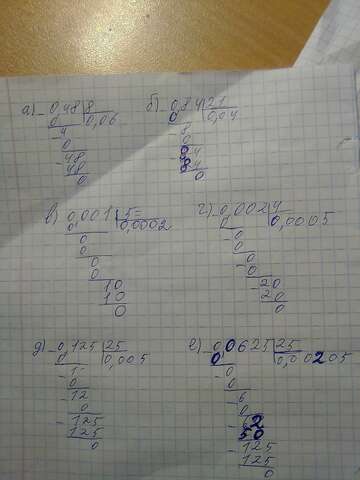 а) 0,48 | 8
0 | 0,06
- 4
0
- 48
48
0
б) 0,84 | 21
0 | 0,04
- 8
0
84
84
0
в) 0,001 | 5
0 | 0,0002
0
0
0
0
10
10
0
г) - 0,002 | 4
0 | 0,0005
- 0
0
- 0
- 0
- 20
20
0
д) - 0,125 | 25
0 | 0,005
- 1
0
- 12
0
- 125
125
0
е) - 0,0625 | 25
0 | 0,00205
- 0
0
- 6
0
- 62
50
- 125
125
0